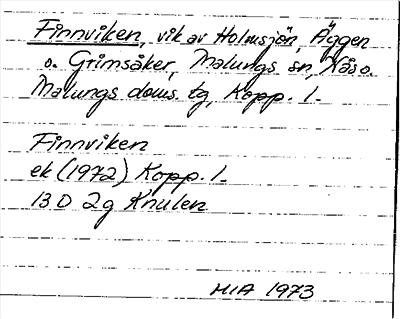 Finnviken, vik av Holmsjön, Äggen
o. Grimsåker, Malungs sn, Nås o.
Malungs doms. tg, Kopp. l.
Finnviken
ek (1972) Kopp. l.
13 D 2g Knulen
MIA 1973